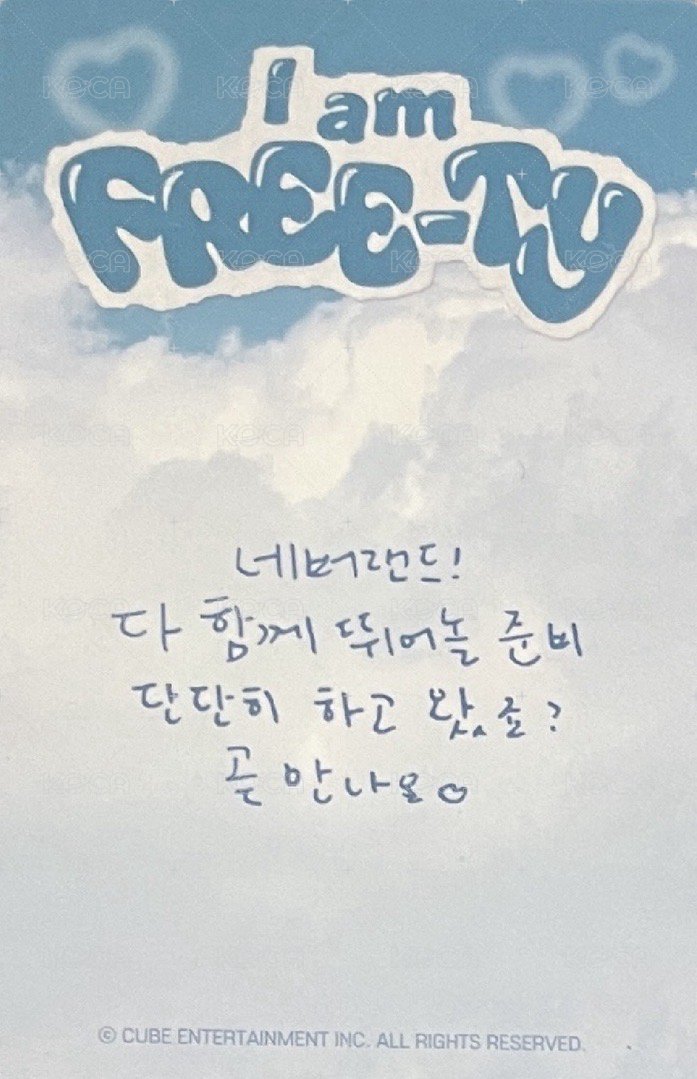 I am
FREE-TY
네버랜드!
다 함께 뛰어놀 준비
단단히 하고 왔죠?
곧 만나요♡
© CUBE ENTERTAINMENT INC. ALL RIGHTS RESERVED.
KOCA